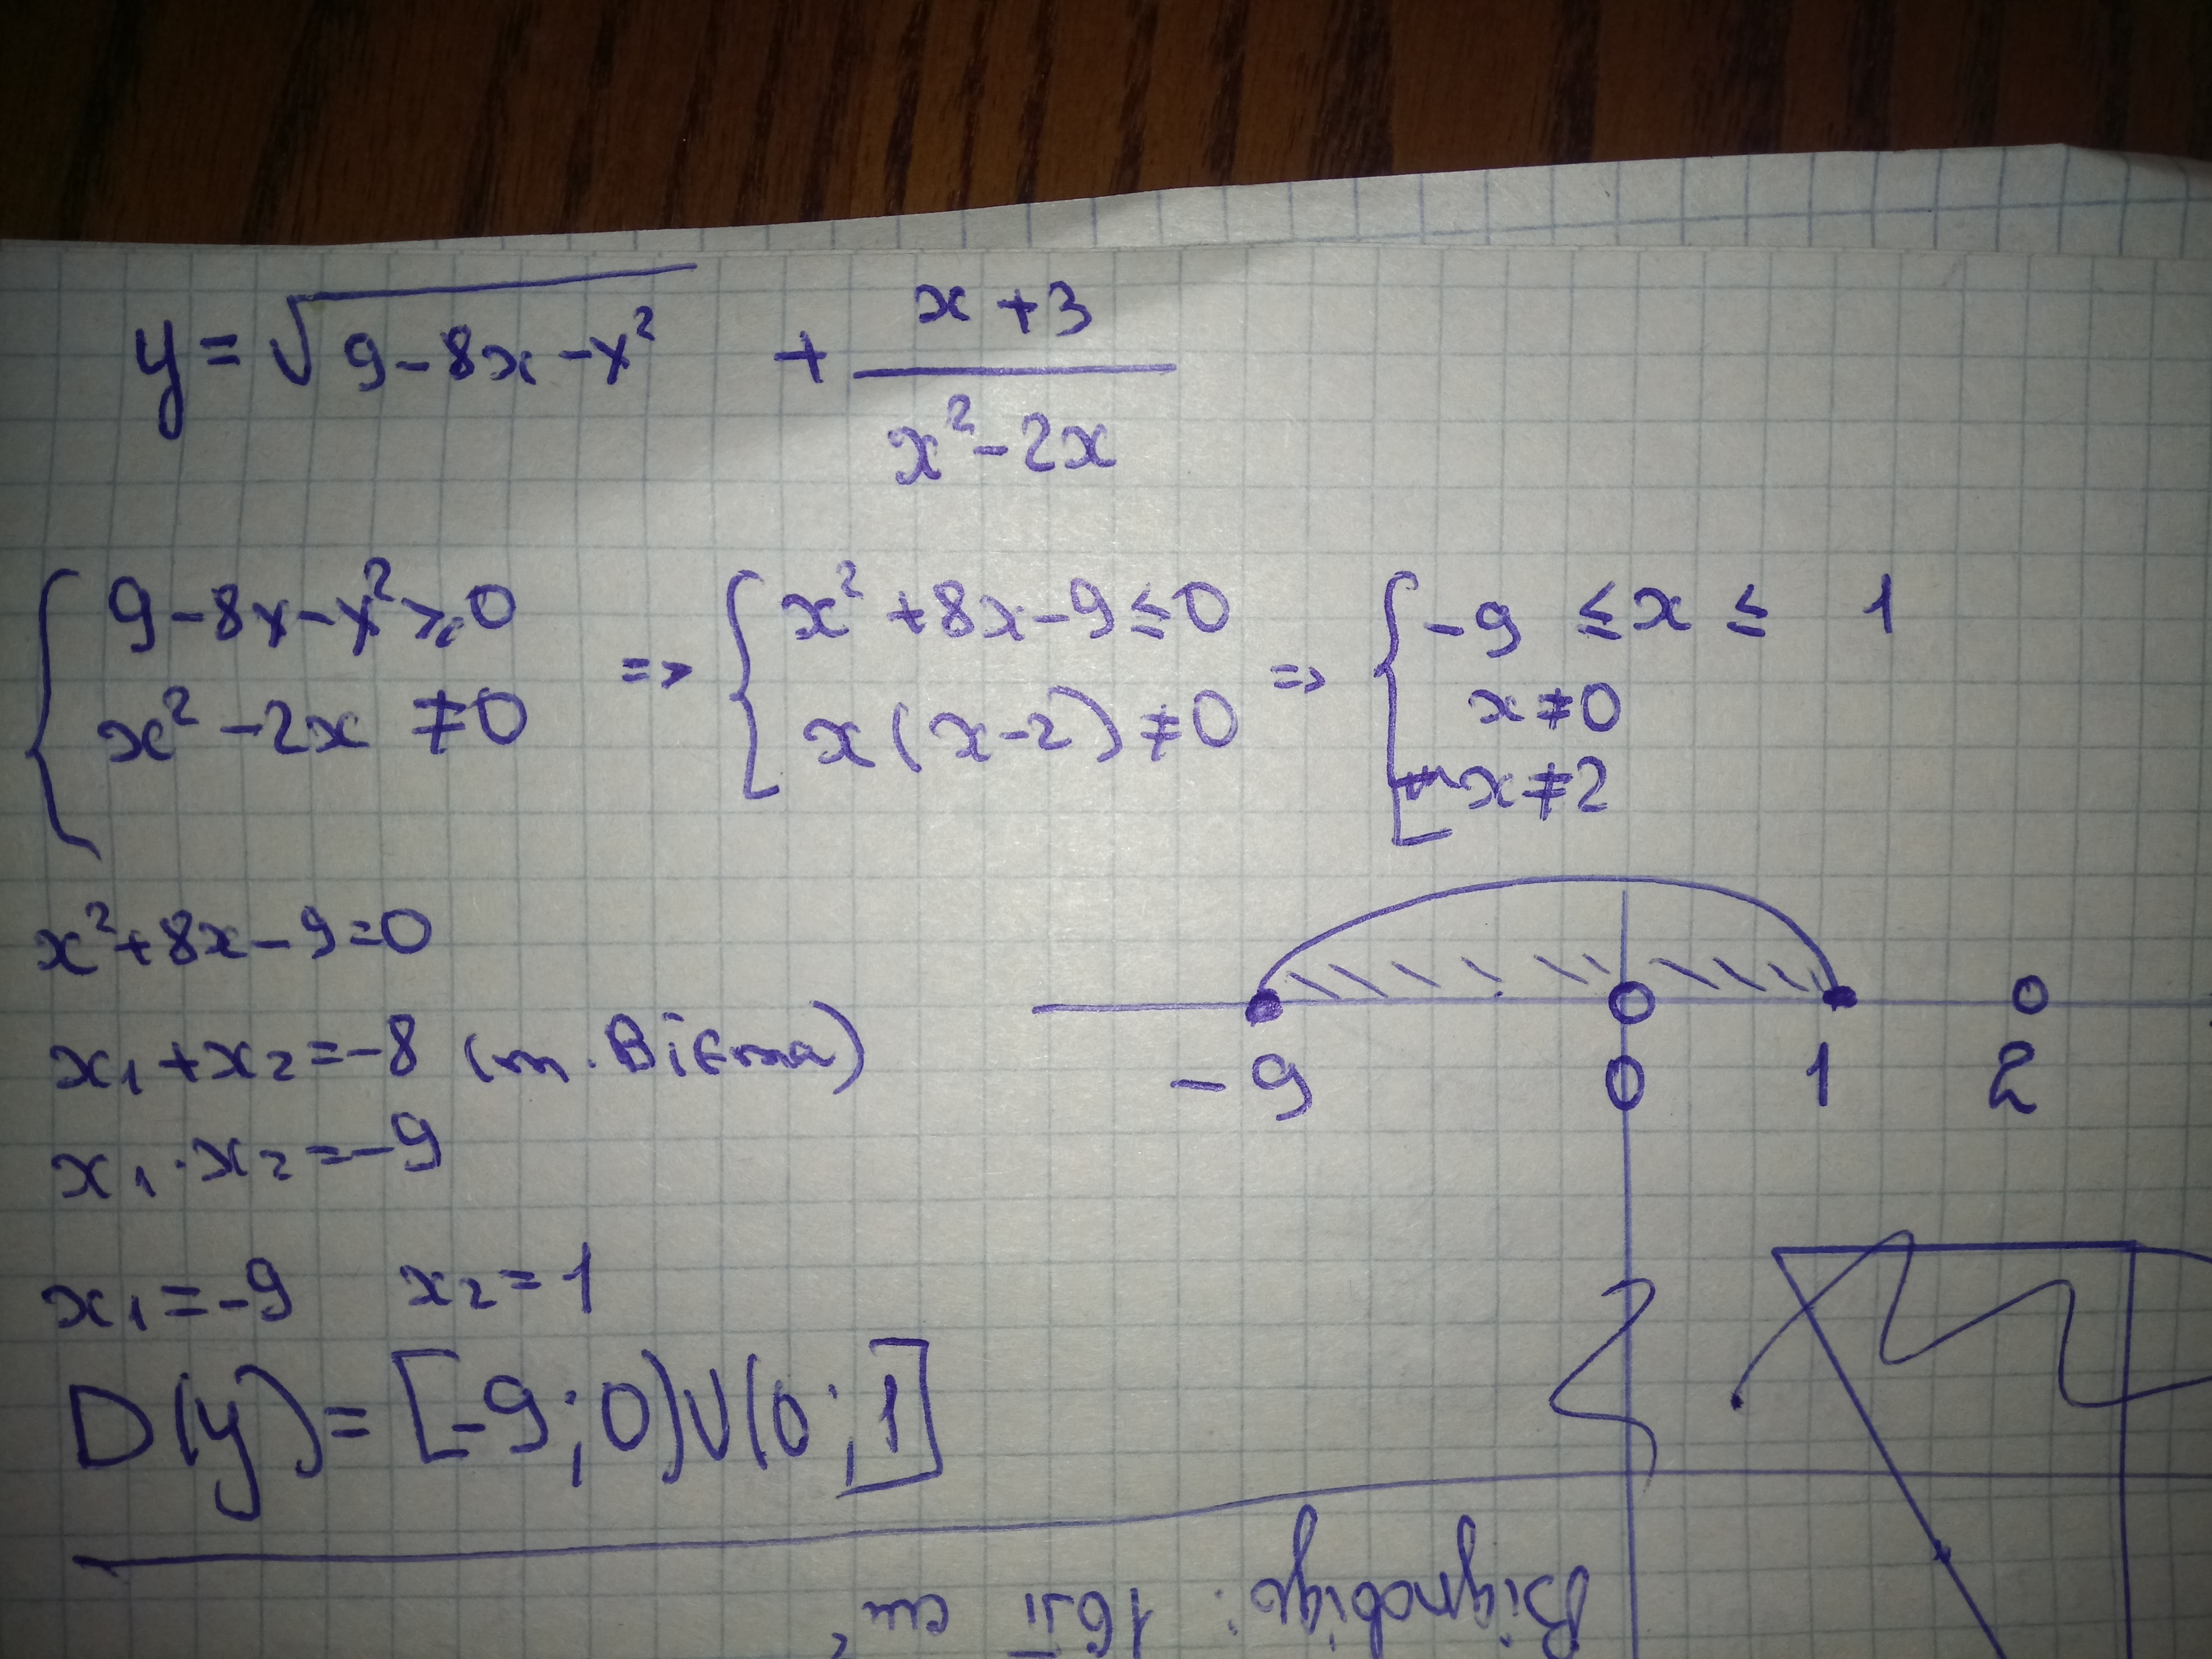 y = √(9-8x-x²) + (x+3)/(x²-2x)
{ 9-8x-x² ≥ 0 => { x²+8x-9 ≤ 0 => { -9 ≤ x ≤ 1
x²-2x ≠ 0 x(x-2) ≠ 0 x ≠ 0
x ≠ 2
x²+8x-9=0
x₁+x₂=-8 (т. Вієта)
x₁·x₂=-9
-9 0 1 2
x₁=-9 x₂=1
D(y)=[-9;0)∪(0;1]
Відповідь: 16π см²